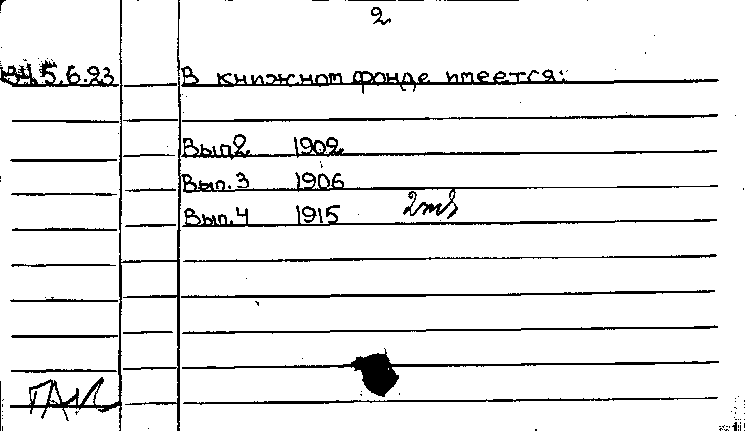 2
34.5.6.23 В книжном фонде имеется:
Вып2 1902
Вып.3 1906
Вып.4 1915 2экз